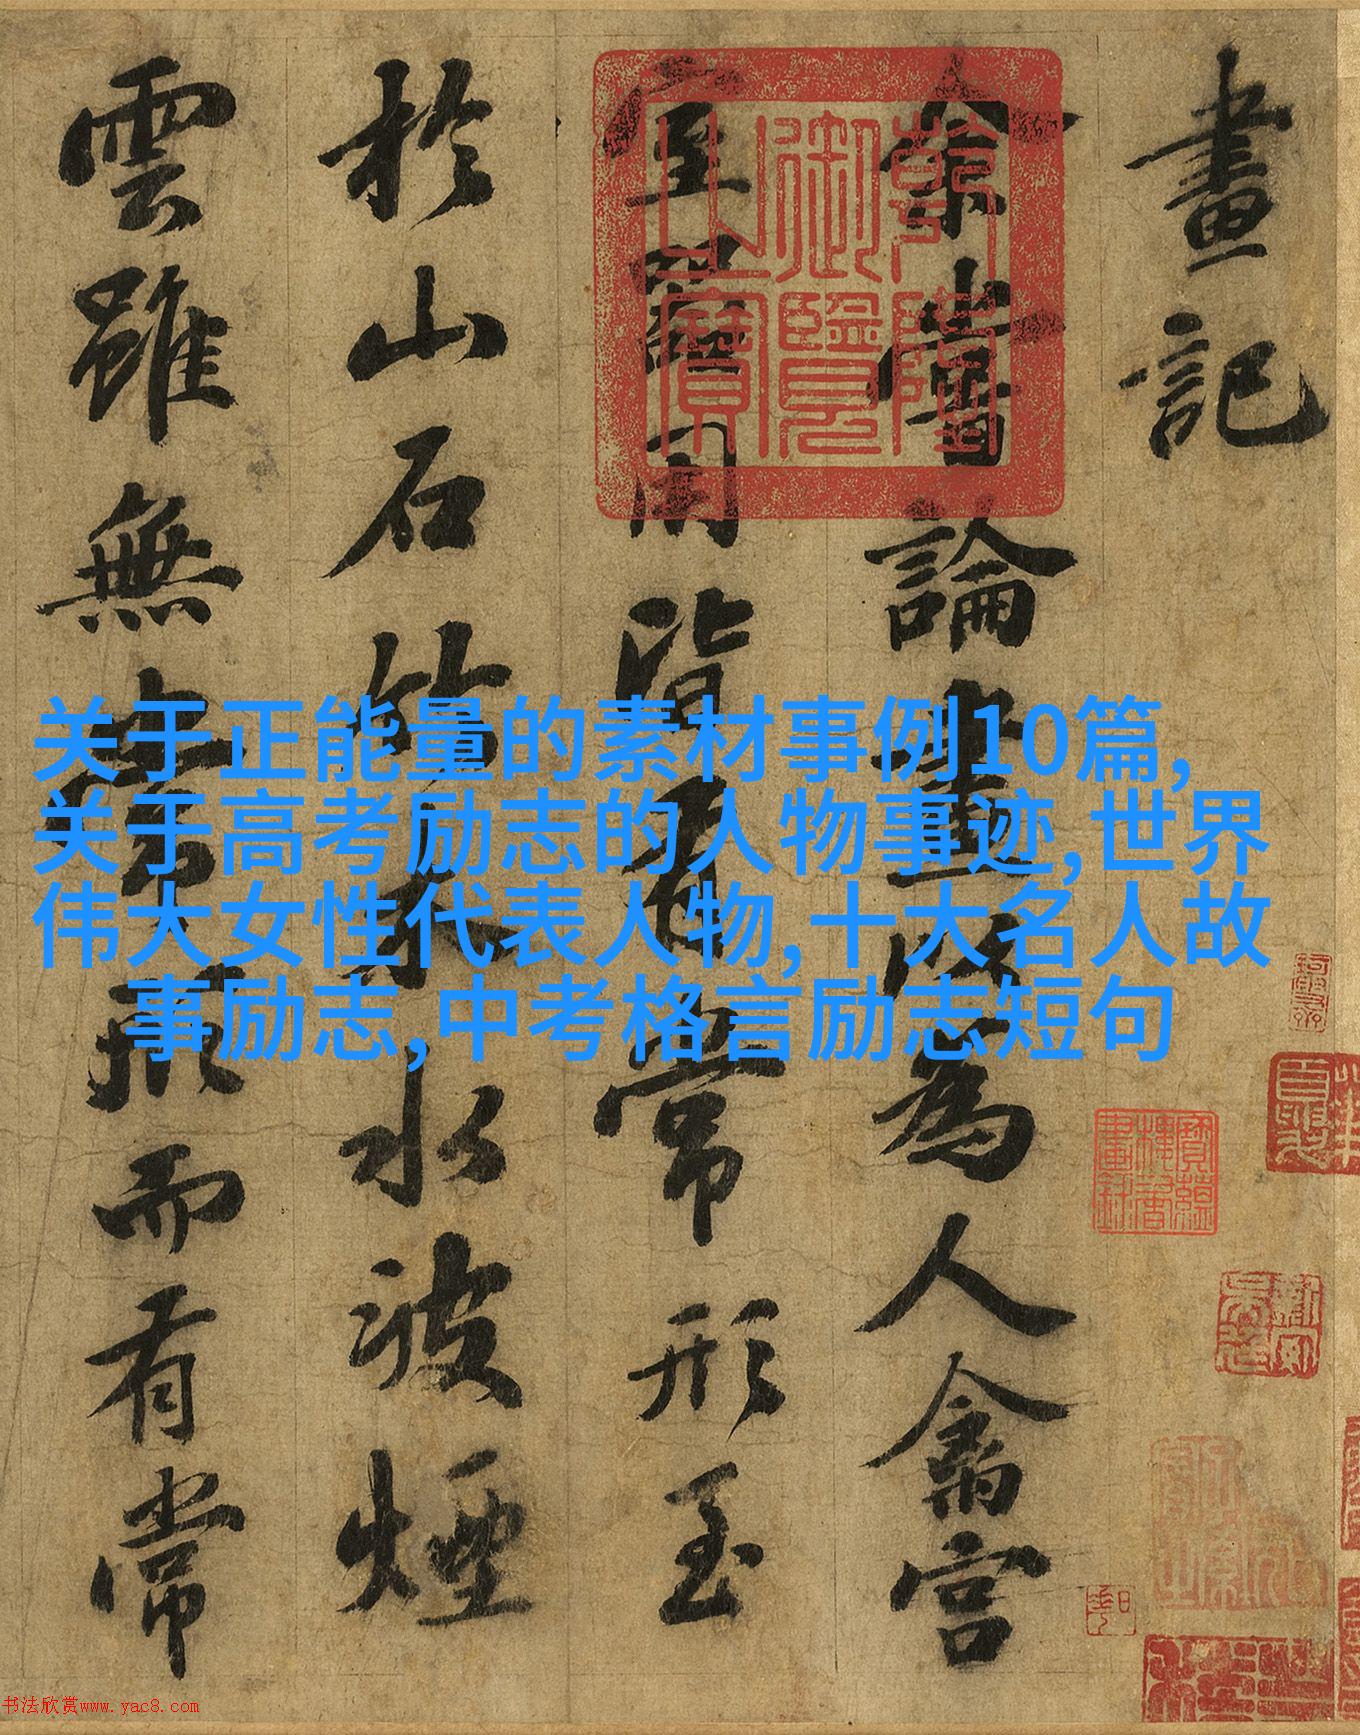 畫記
余嘗論畫以為人禽宮
室器用皆有常形至
於山石竹木水波煙
雲雖無常形而有常
乾隆
御覽
之寶
关于正能量的素材事例10篇,
关于高考励志的人物事迹,世界
伟大女性代表人物,十大名人故
事励志,中考格言励志短句
书法欣赏www.yac8.com